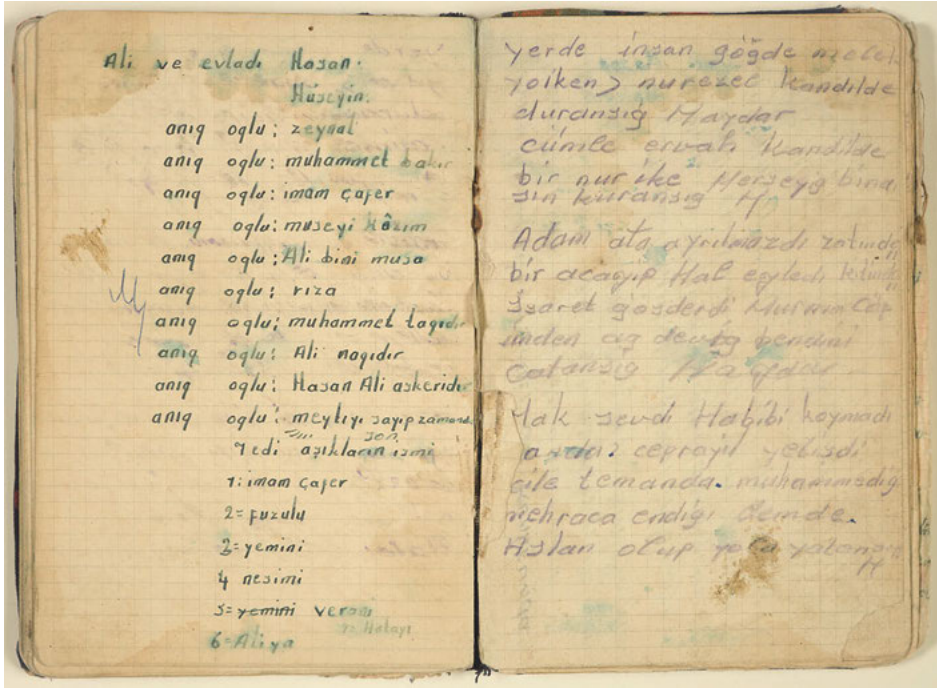 Ali ve evladı Hasan.
Hüseyin.
anıg oglu; zeynal
anıg oglu: muhammet bakır
anıg oglu: imam çafer
anıg oglu: museyi kâzım
anıg oglu; Ali bini musa
anıg oglu; rıza
anıg oglu; muhammet tagıdır
anıg oglu: Ali nagıdır
anıg oglu: Hasan Ali askeridir
anıg oglu: meytiyi sayıp zaman
son
7edi aşıkların ismi
1: imam çafer
2= fuzulu
3= yemini
4 nesimi
5= yemini verani
7= Hatayi
6= Aliya
yerde insan göğde melek
yoiken) nurezel kandilde
duransıg Haydar
cümle ervah kandilde
bir nur ike Herseyıg bina
sin kuransıg H
Adam ata ayrılmazdı
bir acayip Hal eyledi
İsaret gosderdi
inden
çatansıg Haydar
Hak sevdi Habibi koymadı
ceprayil yetisdi
çile temanda. muhammedig
mehraca endigi demde.
Aslan olup yola
H